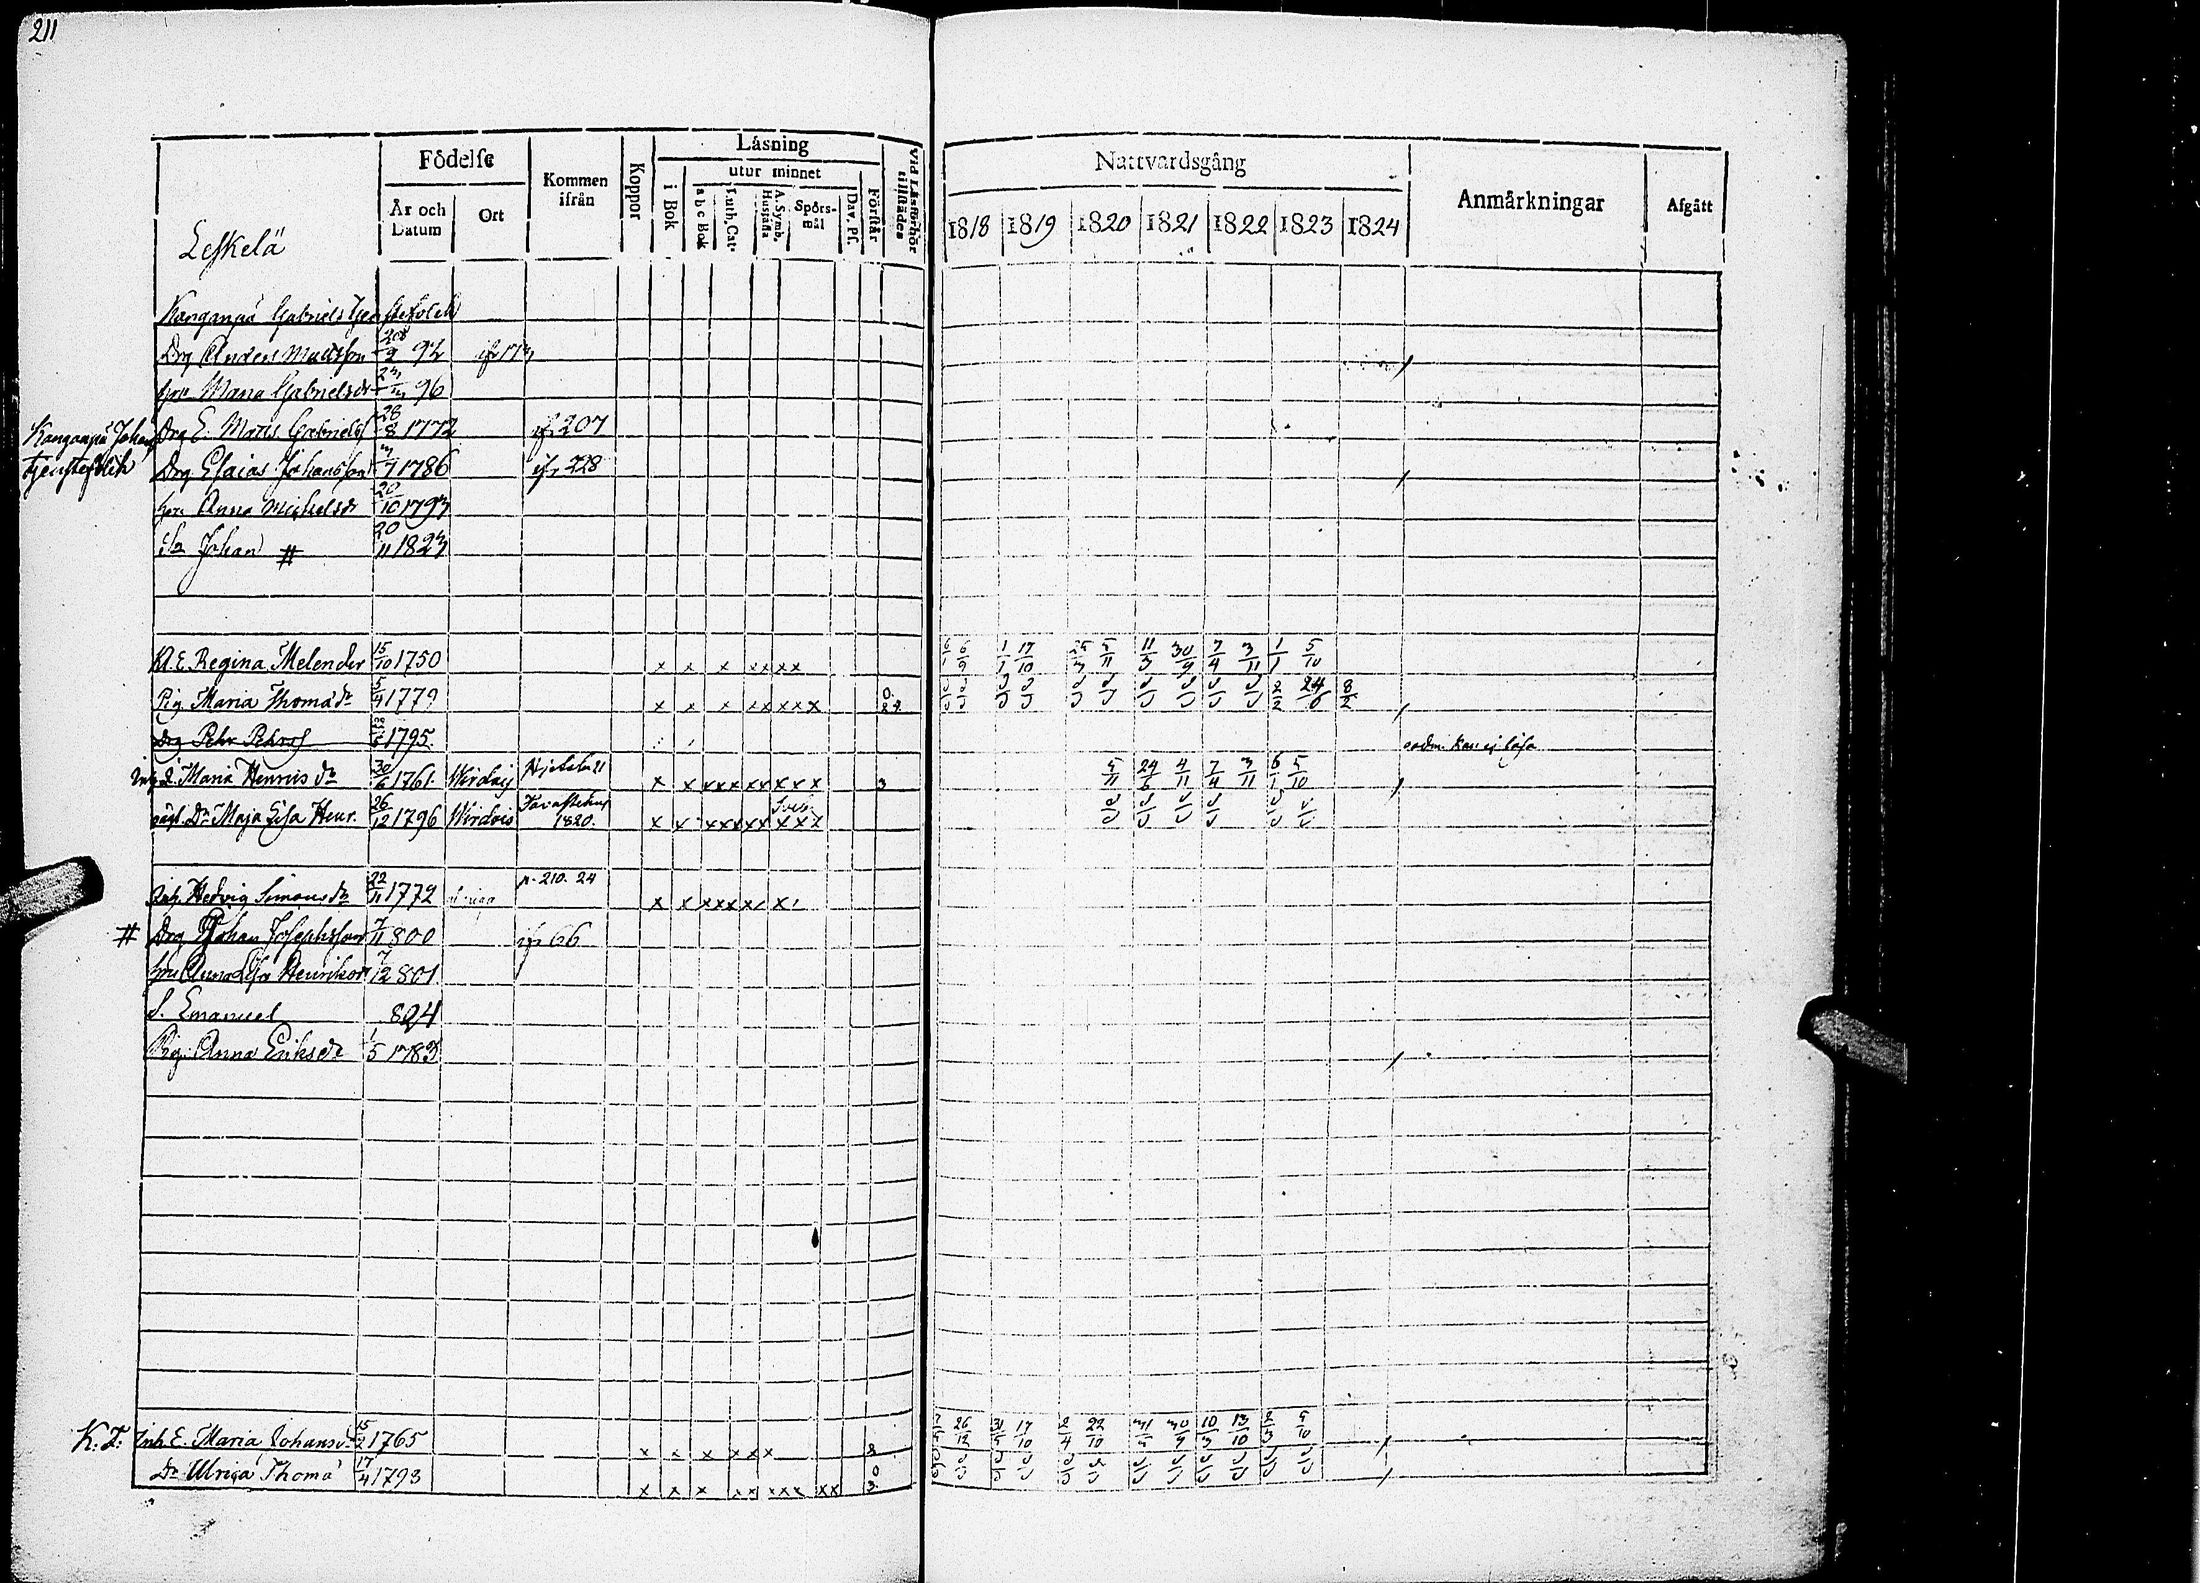 211
Leskelä
Födelse
År och Datum
Ort
Kommen ifrån
Koppor
Läsning
i Bok
utur minnet
a b c Bok
Luth. Cat.
A. Symb. Hustafla
Spörsmål
Dav. Ps.
Förstår
Vid Läsförhör tillstädes
Nattvardsgång
1818 1819 1820 1821 1822 1823 1824
Anmärkningar
Afgått
Kangaspä Gabriels tjenstefolck
Drg Anders Mattsson 9
Hu Maria Gabrielsdr 96
Kangaspä Johans tjenstefolck
Drg E. Matts Gabrielss 28/8 1772 ifr 207
Drg Esaias Johansson 1786 ifr 228
hu Anna Michelsdr 20/10 1793
So Johan # 20/11 1823
Kl. E. Regina Melender 15/10 1750 x x x xx xx 6/1 6/9 1/1 17/10 25/3 5/11 11/3 30/9 7/4 3/11 1/1 5/10
Pig. Maria Thomædr 5/4 1779 x x x xx xxx 2/2 24/6 8/2
Drg Pehr Pehrss 1795 kan ej läsa
Inh. E. Maria Henricsdr 30/6 1761 Wirdois x x xxx xx xxx 3 5/11 24/6 4/11 7/4 3/11 6/1 5/10
Dr Maja Lisa Henr. 26/12 1796 Wirdois Tavastehus 1820. x x xxx xx xxx
Inh. Hedvig Simonsdr 22/11 1772 p. 210. 24 x x xxx x
# Drg Johan Josephsson 7/11 800 ifr 66
hu Anna Lisa Henriksdr 7/12 801
S. Emanuel 824
Pig. Anna Eriksdr 1/5 1783
K. T. Inh. E. Maria Johansdr 15/2 1765 x x x xx x 8 26/12 31/5 17/10 2/4 22/10 30/9 10/3 13/10 2/3 5/10
Dr Ulrica Thomæ 17/4 1793 x x x xx xxx xx